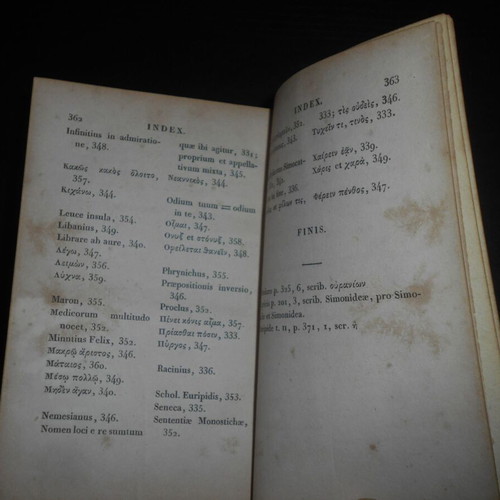 362
INDEX.
Infinitius in admiratio-
ne, 348.
Κακῶς κακὸς ὄλοιτο,
357.
Κιχάνω, 344.
Leuce insula, 354.
Libanius, 349.
Librare ab aure, 340.
Λέγω, 347.
Λειμὼν, 356.
Λύχνα, 359.
Maron, 355.
Medicorum multitudo
nocet, 352.
Minutius Felix, 352.
Μακρῷ ἄριστος, 346.
Μάταιος, 360.
Μέσῳ πολλῷ, 349.
Μηδὲν ἄγαν, 340.
Nemesianus, 346.
Nomen loci e re sumtum
quæ ibi agitur, 331;
proprium et appella-
tivum mixta, 345.
344.
Odium tuum = odium
in te, 343.
Οἶμαι, 347.
Ὄνυξ et στόνυξ, 358.
Ὀφείλεται θανεῖν, 348.
Phrynichus, 355.
Præpositionis inversio,
346.
Proclus, 352.
Πίνει κόνις αἷμα, 357.
Πρίασθαι πόσιν, 333.
Πύργος, 347.
Racinius, 336.
Schol. Euripidis, 353.
Seneca, 335.
Sententiæ Monostichæ,
352.
363
INDEX.
333; τὶς οὐθεὶς, 346.
343. Τυχεῖν τι, τινὸς, 333.
Χαίρειν ἐᾷν, 339.
Χάρις et χαρὰ, 349.
336.
φίλων τις, Φέρειν πένθος, 347.
FINIS.
p. 325, 6, scrib. οὐρανίων
p. 201, 3, scrib. Simonideæ, pro Simo-
et Simonidea.
t. II, p. 371, 1, scr. ἡ